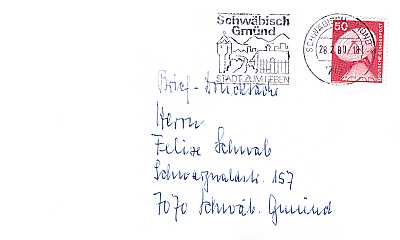 Schwäbisch
Gmünd
STADT ZUM LEBEN
SCHWÄBISCH GMÜND
50
DEUTSCHE BUNDESPOST
Brief-Drucksache
Herrn
Felix Schwab
Schwarzwaldstr. 157
7070 Schwäb. Gmünd